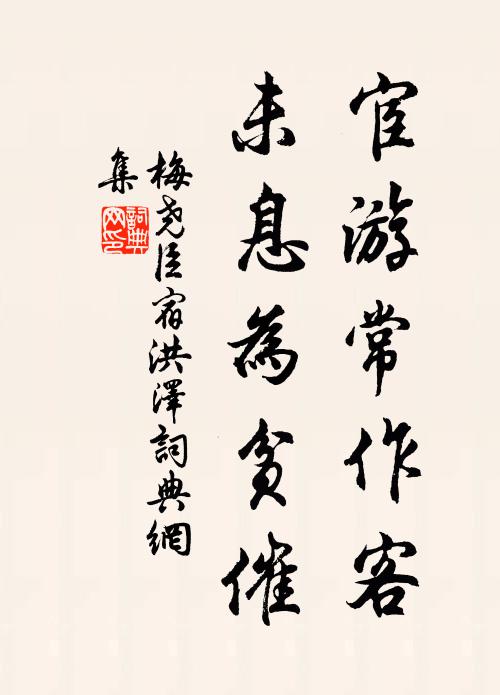 宦游常作客
未息為貧催
梅堯臣宿洪澤詞典網
集
詞典
网印